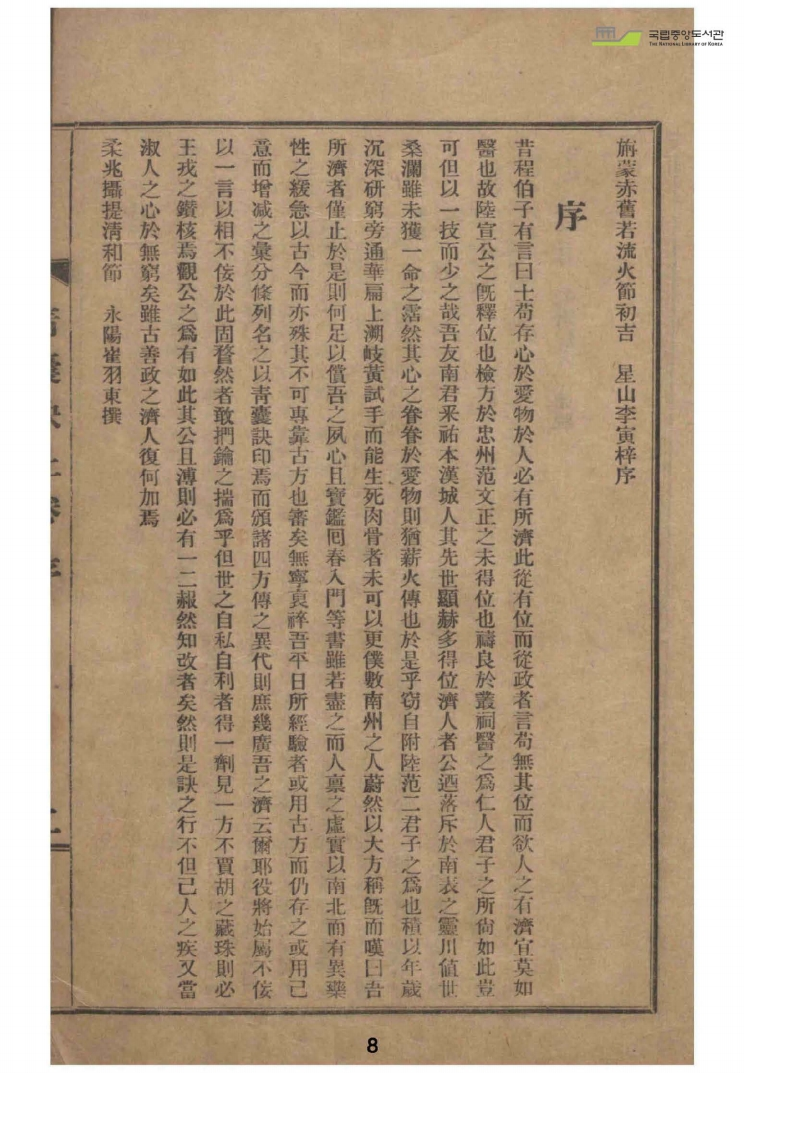 국립중앙도서관
THE NATIONAL LIBRARY OF KOREA
旃蒙赤奮若流火節初吉 星山李寅梓序
序
昔程伯子有言曰士苟存心於愛物於人必有所濟此從有位而從政者言苟無其位而欲人之有濟宜莫如
醫也故陸宣公之旣釋位也檢方於忠州范文正之未得位也禱良於叢祠醫之爲仁人君子之所尙如此豈
可但以一技而少之哉吾友南君采祐本漢城人其先世顯赫多得位濟人者公迺落斥於南表之靈川値世
桑瀾雖未獲一命之霑然其心之眷眷於愛物則猶薪火傳也於是乎窃自附陸范二君子之爲也積以年歲
沉深硏窮旁通華扁上溯岐黃試手而能生死肉骨者未可以更僕數南州之人蔚然以大方稱旣而嘆曰吾
所濟者僅止於是則何足以償吾之夙心且寶鑑回春入門等書雖若盡之而人禀之虛實以南北而有異藥
性之緩急以古今而亦殊其不可專靠古方也審矣無寧裒稡吾平日所經驗者或用古方而仍存之或用己
意而增减之彙分條列名之以靑囊訣印焉而頒諸四方傳之異代則庶幾廣吾之濟云爾耶役將始屬不侫
以一言以相不侫於此固瞀然者敢捫鑰之揣爲乎但世之自私自利者得一劑見一方不賈胡之藏珠則必
王戎之鑽核焉觀公之爲有如此其公且溥則必有一二赧然知改者矣然則是訣之行不但已人之疾又當
淑人之心於無窮矣雖古善政之濟人復何加焉
柔兆攝提淸和節 永陽崔羽東撰
8